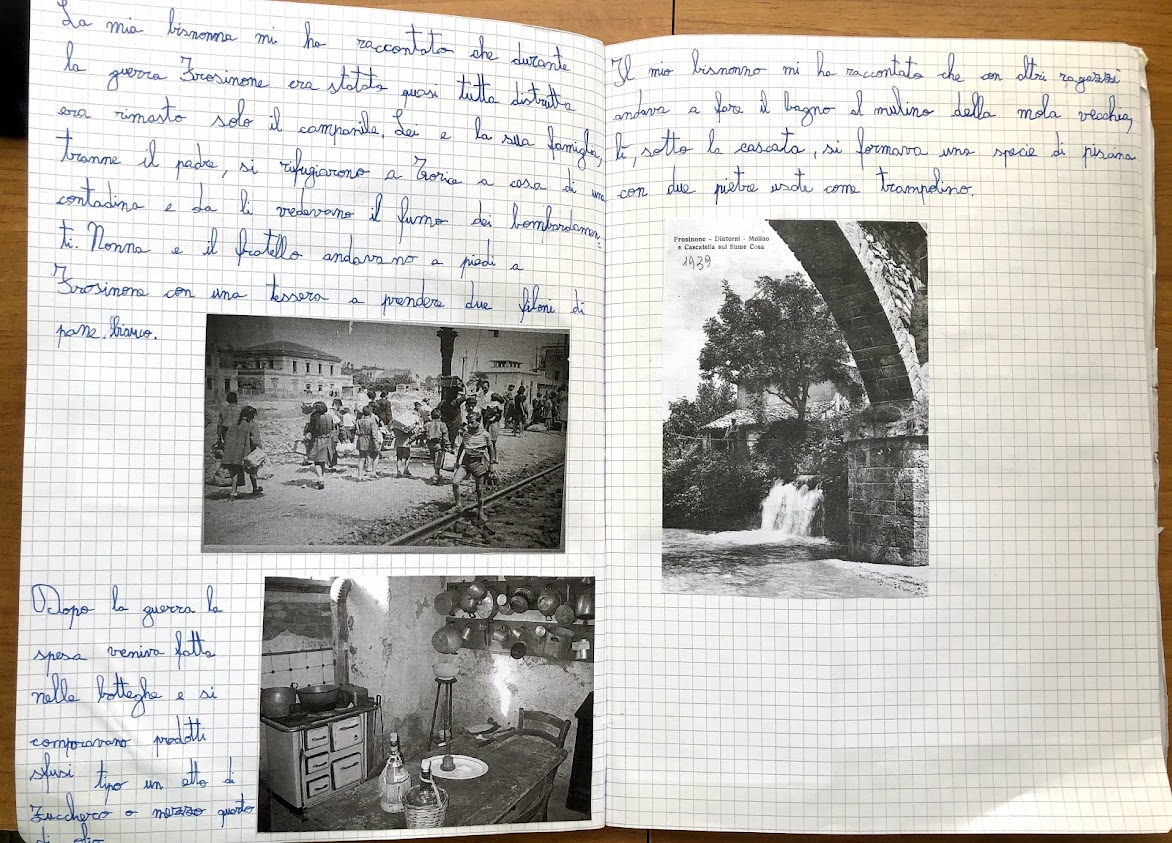 La mia bisnonna mi ha raccontato che durante
la guerra Frosinone era stata quasi tutta distrutta
era rimasto solo il campanile. Lei e la sua famiglia,
tranne il padre, si rifugiarono a Torice a casa di una
contadina e da lì vedevano il fumo dei bombardamen=
ti. Nonna e il fratello andavano a piedi a
Frosinone con una tessera a prendere due filoni di
pane bianco.
Dopo la guerra la
spesa veniva fatta
nelle botteghe e si
compravano prodotti
sfusi tipo un etto di
zucchero o mezzo quarto
di olio
Il mio bisnonno mi ha raccontato che con altri ragazzi
andava a fare il bagno al mulino della mola vecchia,
lì, sotto la cascata, si formava una specie di piscina
con due pietre usate come trampolino.
Frosinone - Dintorni - Molino
e Cascatella sul fiume Cosa
1939